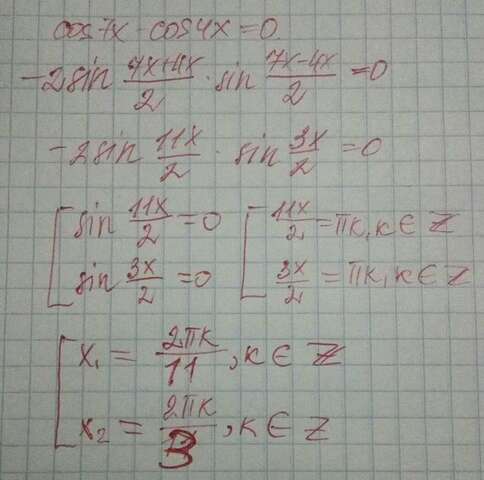 cos7x - cos4x = 0
-2sin (7x+4x)/2 · sin (7x-4x)/2 = 0
-2sin 11x/2 · sin 3x/2 = 0
[ sin 11x/2 = 0 [ 11x/2 = πk, k ∈ Z
sin 3x/2 = 0 3x/2 = πk, k ∈ Z
[ x₁ = 2πk/11, k ∈ Z
x₂ = 2πk/3, k ∈ Z